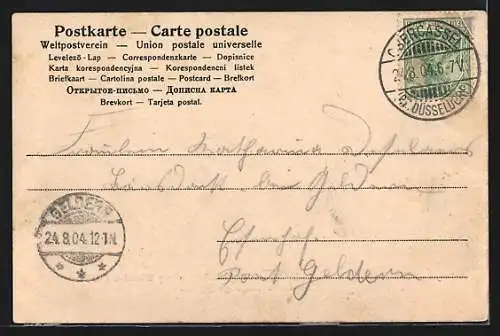 Postkarte — Carte postale
Weltpostverein — Union postale universelle
Levelező-Lap — Correspondenzkarte — Dopisnice
Karta korespondencyjna — Korespondencni listek
Briefkaart — Cartolina postale — Postcard — Brefkort
Открытое-письмо — Дописна карта
Brevkort — Tarjeta postal.
OBERCASSEL
24.8.04.6-7V.
(Kr. DÜSSELDORF)
Fräulein Katharina
bei Geldern
Post Geldern
GELDERN
24.8.04.12-1N.